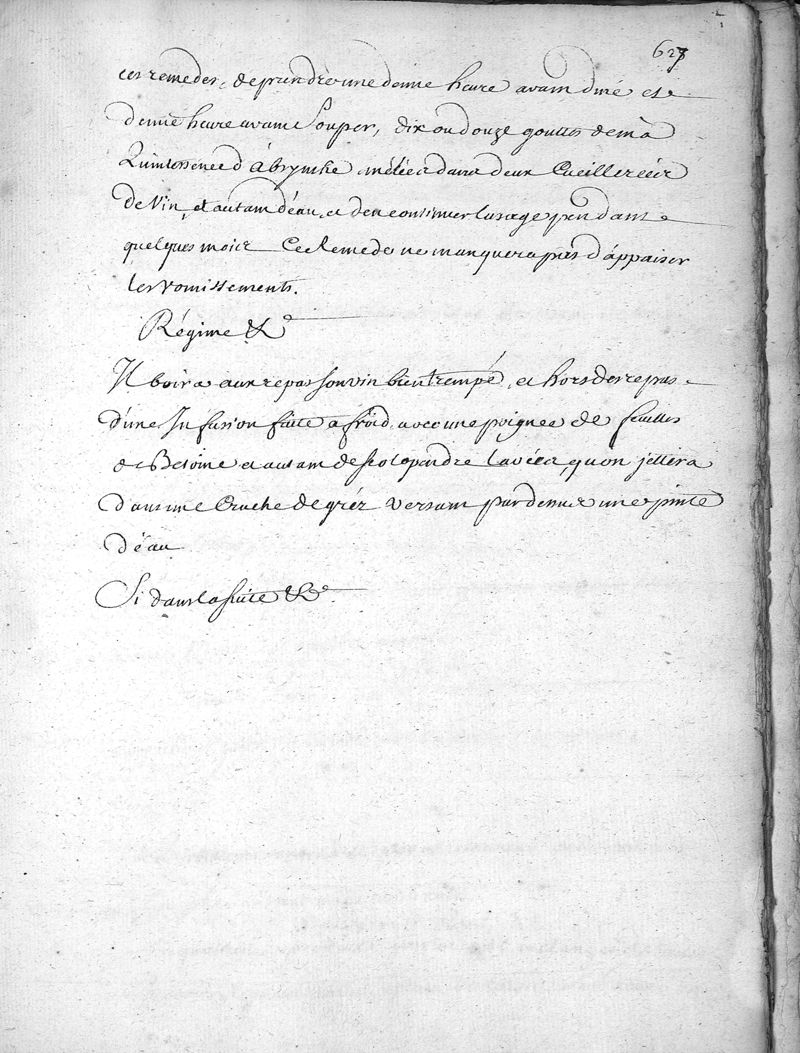 627
ces remedes, de prendre une demie heure avant diné et
demie heure avant Souper, dix ou douze gouttes de ma
Quintessence d'absynthe mêlées dans deux Cueillerées
de Vin, et autant d'éau, et d'en continuer lusage pendant
quelques mois Ce Remede ne manquera pas d'appaiser
les vomissements.
Régime &c
Il boira aux repas son vin bien trempé, et hors des repas
d'une Infusion faite a froid, avec une poignée de feuilles
de Betoine et autant de scolopendre lavées, qu'on jettera
dans une Cruche de gréz versant par dessus une pinte
d'éau
Si dans la suite &c